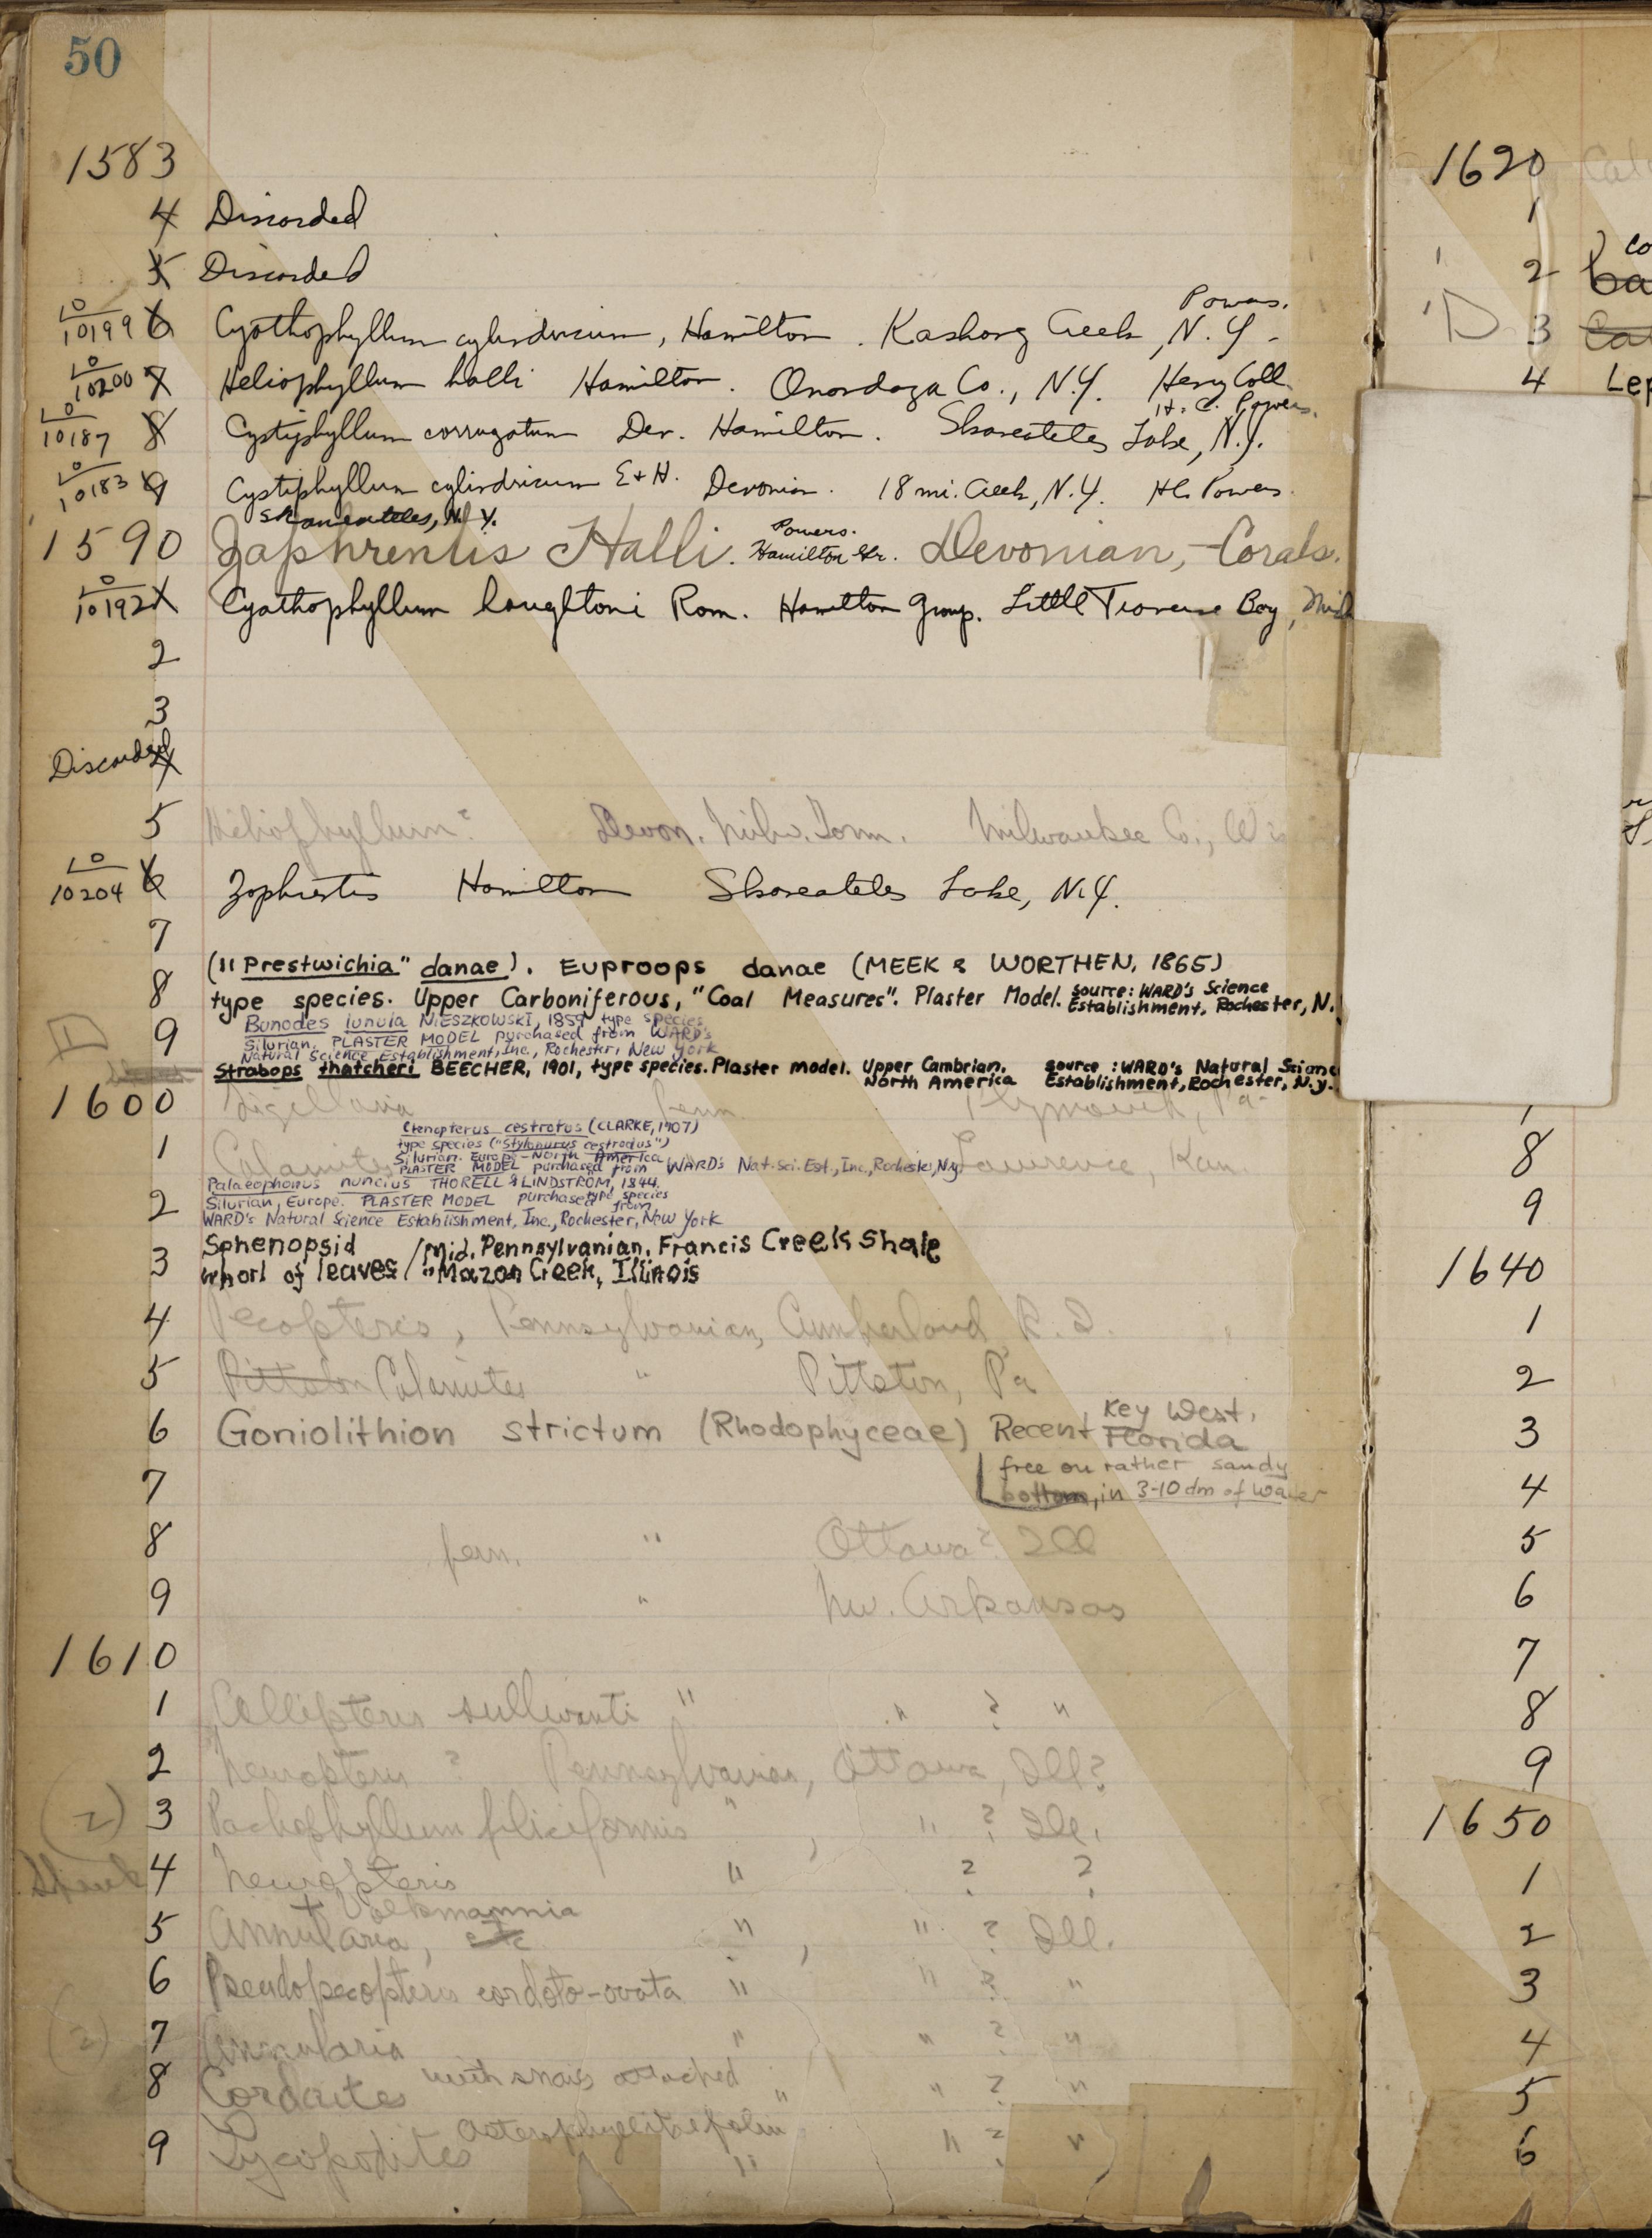 50
1583
4 Discarded
5 Discarded
Powers.
10199 6 Cyathophyllum cylindricum, Hamilton. Kashong Creek, N.Y.
10200 7 Heliophyllum halli Hamilton. Onondaga Co., N.Y. Henry Coll.
H. C. Powers.
10187 8 Cystiphyllum corrugatum Dev. Hamilton. Skaneateles Lake, N.Y.
10183 9 Cystiphyllum cylindricum E & H. Devonian. 18 mi. Creek, N.Y. HC. Powers.
Skaneateles, N.Y. Powers.
1590 Zaphrentis Halli. Hamilton Gr. Devonian, - Corals.
10192 1 Cyathophyllum houghtoni Rom. Hamilton Group. Little Traverse Bay, Mich
2
3
Discarded 4
5 Heliophyllum? Devon. Milw. Form. Milwaukee Co., Wis
10204 6 Zaphrentis Hamilton Skaneateles Lake, N.Y.
7
("Prestwichia" danae). Euproops danae (MEEK & WORTHEN, 1865)
8 type species. Upper Carboniferous, "Coal Measures". Plaster Model. source: WARD's Science
Establishment, Rochester, N.
D 9 Bunodes lunula NIESZKOWSKI, 1859 type species
Silurian. PLASTER MODEL purchased from WARD's
Natural Science Establishment, Inc., Rochester, New York
Strabops thatcheri BEECHER, 1901, type species. Plaster model. Upper Cambrian. source: WARD's Natural Scienc
North America Establishment, Rochester, N.Y.
1600 Sigillaria Penn. Plymouth, Pa.
Ctenopterus cestrotus (CLARKE, 1907)
type species ("Stylonurus cestrotus")
Silurian. Europe - North America
1 Calamites Lawrence, Kan.
PLASTER MODEL purchased from WARD's Nat. Sci. Est., Inc., Rochester, N.Y.
Palaeophonus nuncius THORELL & LINDSTROM, 1844.
type species
2 Silurian, Europe. PLASTER MODEL purchased from
WARD's Natural Science Establishment, Inc., Rochester, New York
Sphenopsid / Mid. Pennsylvanian. Francis Creek Shale
3 whorl of leaves / "Mazon Creek, Illinois
4 Pecopteris, Pennsylvanian, Cumberland R.I.
5 Pittston Calamites " Pittston, Pa
6 Goniolithion strictum (Rhodophyceae) Recent Key West,
Florida
free on rather sandy
7 bottom, in 3-10 dm of water
8 fern. " Ottawa? Ill
9 " nw. Arkansas
1610
1 Callipteris sullivanti " " ? "
2 Neuropteris ? Pennsylvanian, Ottawa, Ill?
(2) 3 Pachyphyllum filiciformis " , " ? Ill.
4 Neuropteris " ? ?
+ Volkmannia
5 Annularia, etc " , " ? Ill.
6 Pseudopecopteris cordato-ovata " " ? "
(2) 7 Annularia " " ? "
with snails attached
8 Cordaites " " ? "
9 Lycopodites " " ? "
1620
1
2
D 3
4 Lep
8
9
1640
1
2
3
4
5
6
7
8
9
1650
1
2
3
4
5
6